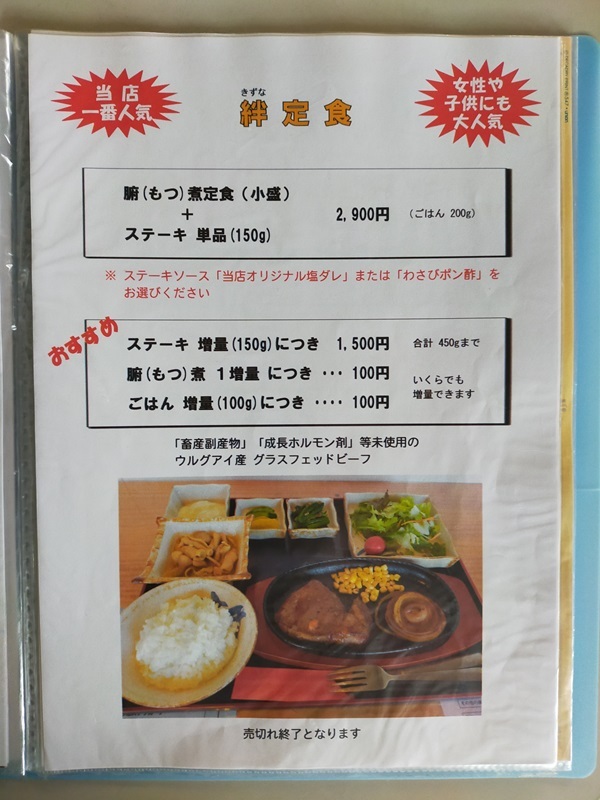 当店
一番人気
きずな
絆定食
女性や
子供にも
大人気
腑(もつ)煮定食(小盛)
+
ステーキ 単品(150g)
2,900円 (ごはん 200g)
※ ステーキソース「当店オリジナル塩ダレ」または「わさびポン酢」を
お選びください
おすすめ
ステーキ 増量(150g)につき 1,500円 合計 450gまで
腑(もつ)煮 1増量 につき ··· 100円
ごはん 増量(100g)につき ···· 100円
いくらでも
増量できます
「畜産副産物」「成長ホルモン剤」等未使用の
ウルグアイ産 グラスフェッドビーフ
売切れ終了となります